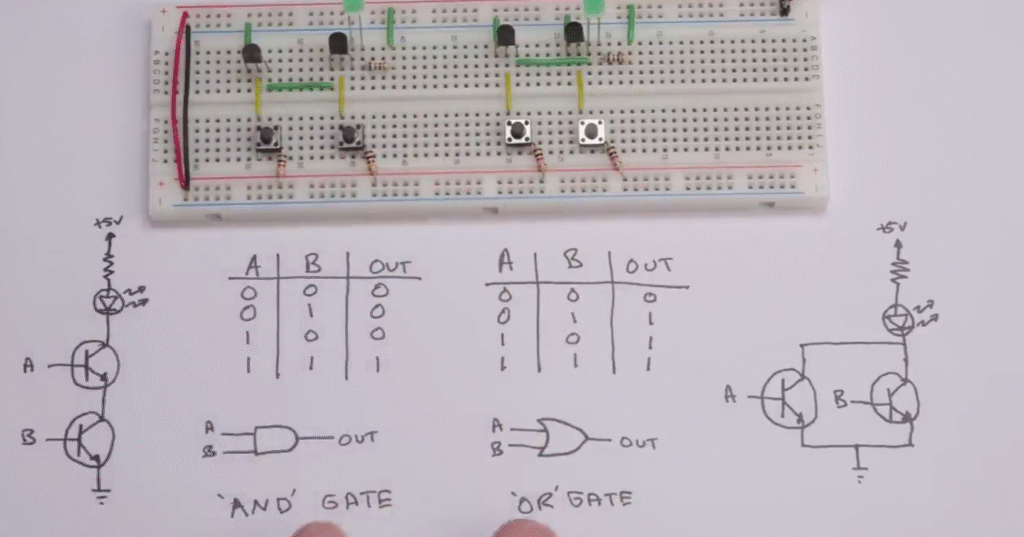 +5V
A B OUT
0 0 0
0 1 0
1 0 0
1 1 1
A
B
A
B
OUT
'AND' GATE
A B OUT
0 0 0
0 1 1
1 0 1
1 1 1
A
B
OUT
'OR' GATE
+5V
A
B